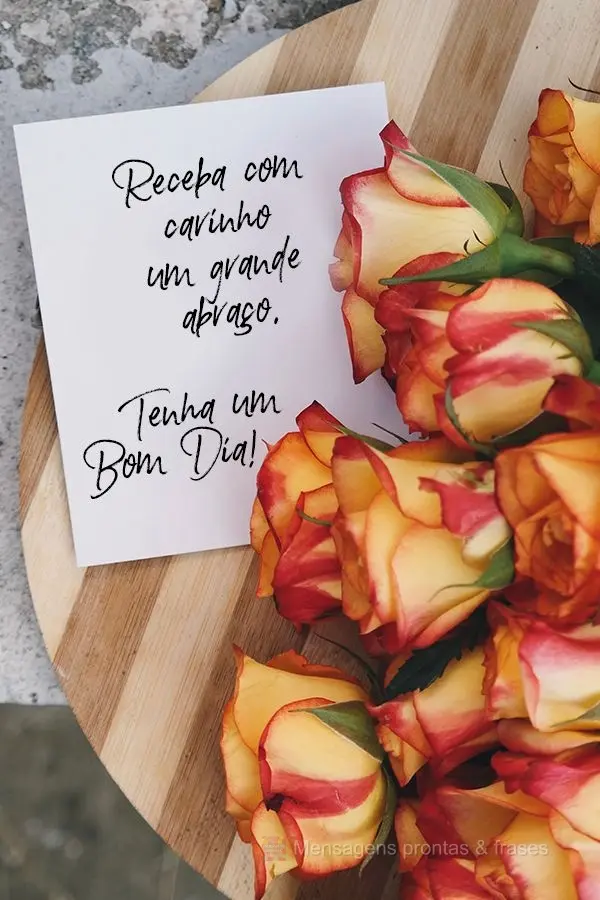 Receba com
carinho
um grande
abraço.
Tenha um
Bom Dia!
Mensagens prontas & frases